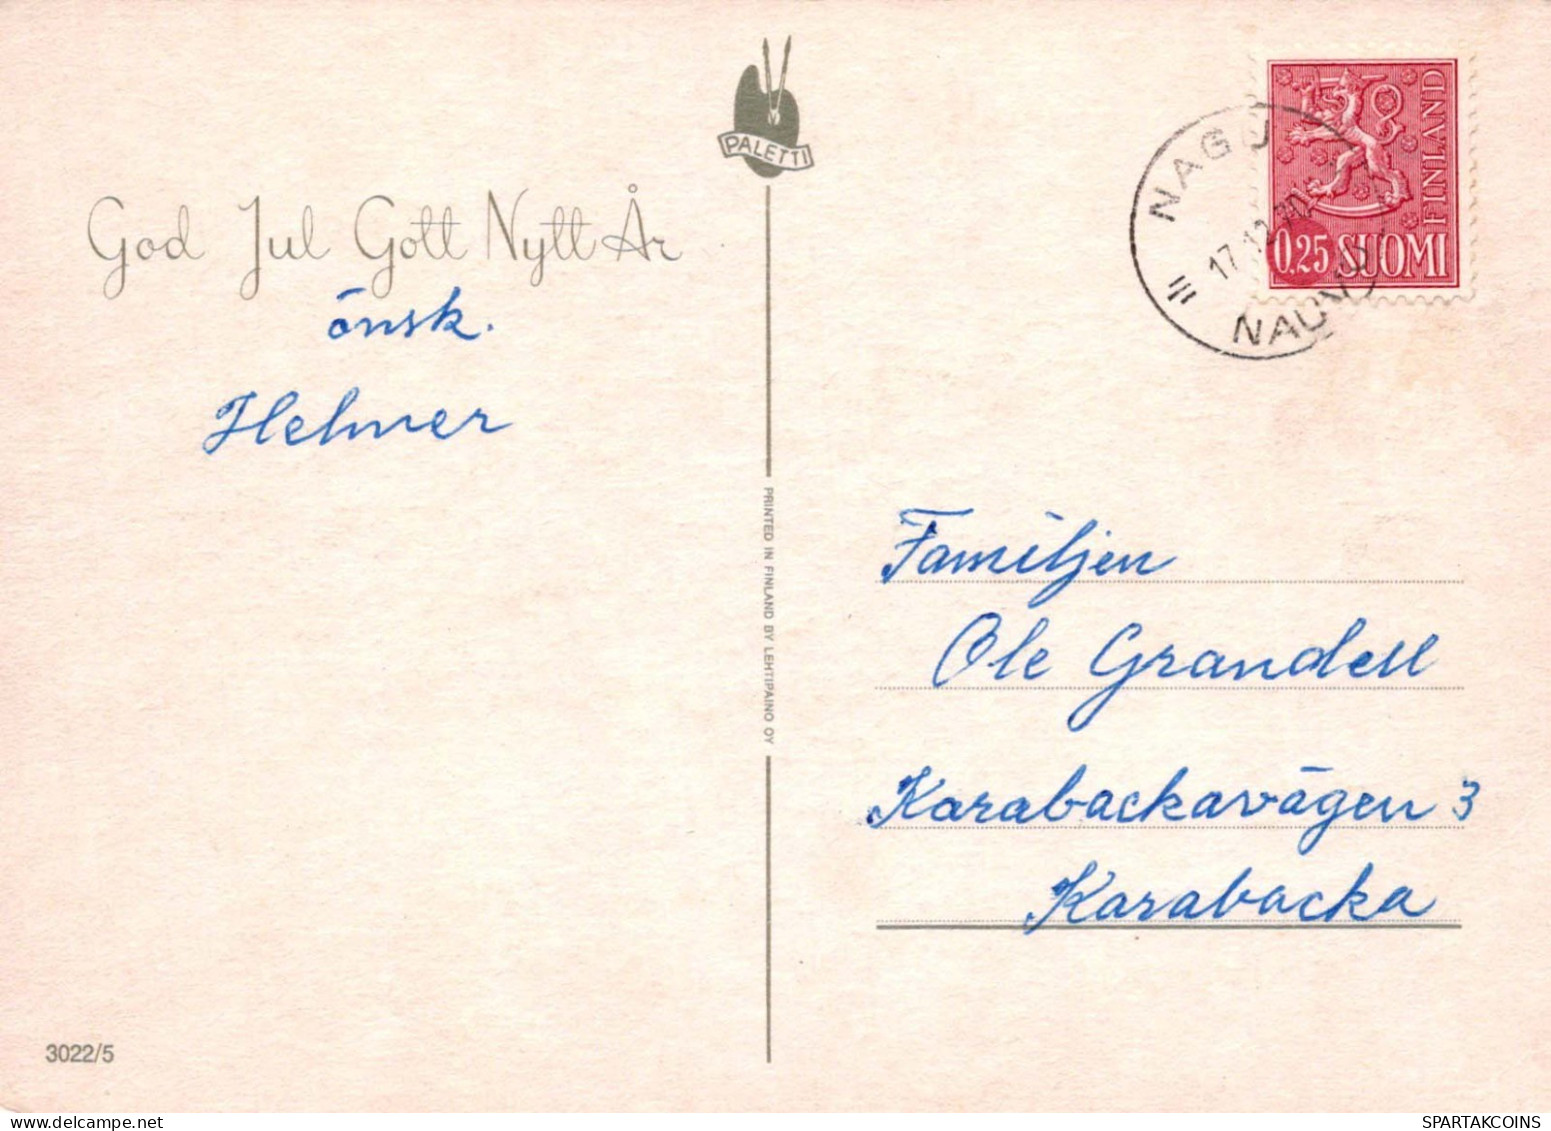 PALETTI
God Jul Gott Nytt År
önsk.
Helmer
NAGU
17.12.70
NAUVO
FINLAND
0.25 SUOMI
PRINTED IN FINLAND BY LEHTIPAINO OY
Familjen
Ole Grandell
Karabackavägen 3
Karabacka
3022/5
SPARTAKCOINS